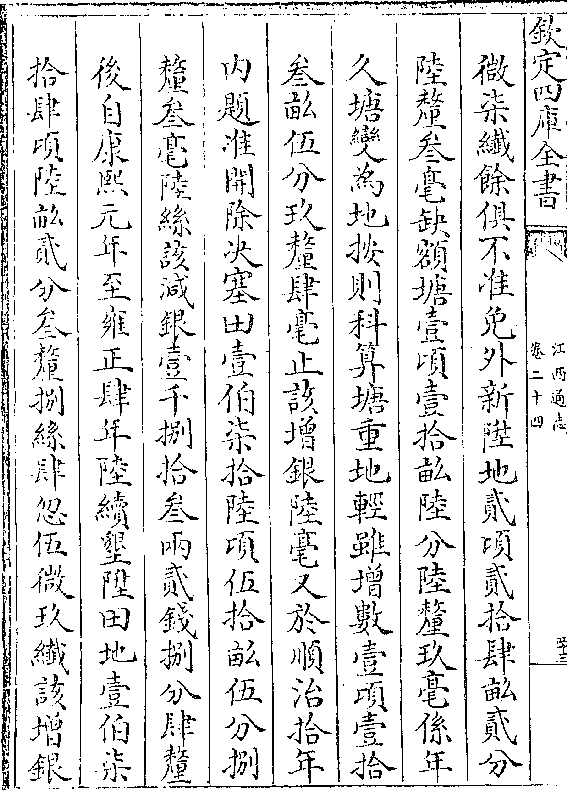 欽定四庫全書
江西通志
卷二十四
微柒纖餘俱不准免外新陞地貳項貳拾肆畝貳分
陸釐叁毫缺額塘壹項壹拾畝陸分陸釐玖毫係年
久塘變為地按則科算塘重地輕雖增數壹項壹拾
叁畝伍分玖釐肆毫止該增銀陸毫又於順治拾年
内題准開除決塞田壹伯柒拾陸項伍拾畝伍分捌
釐叁毫陸絲該減銀壹千捌拾叁兩貳錢捌分肆釐
後自康熙元年至雍正肆年陸續墾陞田地壹伯柒
拾肆頃陸畝貳分叁釐捌絲肆忽伍微玖纖該增銀